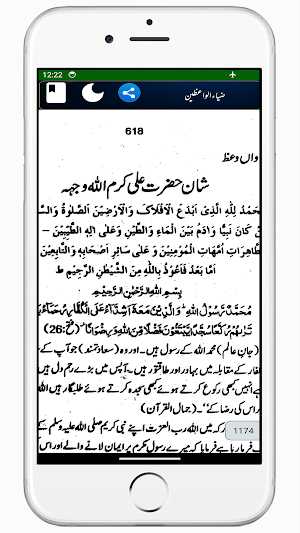 12:22
ضیاءالواعظین
618
واں وعظ
شان حضرت علی کرم اللہ وجہہ
حَمْدُ لِلّٰهِ الَّذِیْ اَبْدَعَ الْاَفْلَاکَ وَالْاَرْضِیْنَ الصَّلٰوةُ وَالسَّ
کَانَ نَبِیًّا وَاٰدَمُ بَیْنَ الْمَاءِ وَالطِّیْنِ وَعَلٰی اٰلِهِ الطَّیِّبِیْنَ –
طَاهِرَاتِ اُمَّهَاتِ الْمُؤْمِنِیْنَ وَ عَلٰی سَائِرِ اَصْحَابِهٖ وَالتَّابِعِیْنَ
اَمَّا بَعْدُ فَاَعُوْذُ بِاللّٰهِ مِنَ الشَّیْطٰنِ الرَّجِیْمِ ط
بِسْمِ اللّٰهِ الرَّحْمٰنِ الرَّحِیْمِ
مُحَمَّدٌ رَّسُوْلُ اللّٰهِ وَالَّذِیْنَ مَعَهٗ اَشِدَّآءُ عَلَی الْکُفَّارِ رُحَمَآءُ
تَرٰىهُمْ رُکَّعًا سُجَّدًا یَّبْتَغُوْنَ فَضْلًا مِّنَ اللّٰهِ وَرِضْوَانًا (26:
(جان عالم) محمد اللہ کے رسول ہیں۔ اور وہ (سعادتمند) جو آپ کے
فار کے مقابلہ میں بہادر اور طاقتور ہیں۔ آپس میں بڑے رحم دل ہیں
انہیں کبھی رکوع کرتے ہوئے کبھی سجدہ کرتے ہوئے طلبگار ہیں اللہ
اور اس کی رضا کے"۔ (جمال القرآن)
کہ میں اللہ رب العزت اپنے نبی کریم صلی اللہ علیہ وسلم کے
1174
فرما رہا ہے فرمایا کہ میرے رسول مکرم پر ایمان لانے والے اور اس